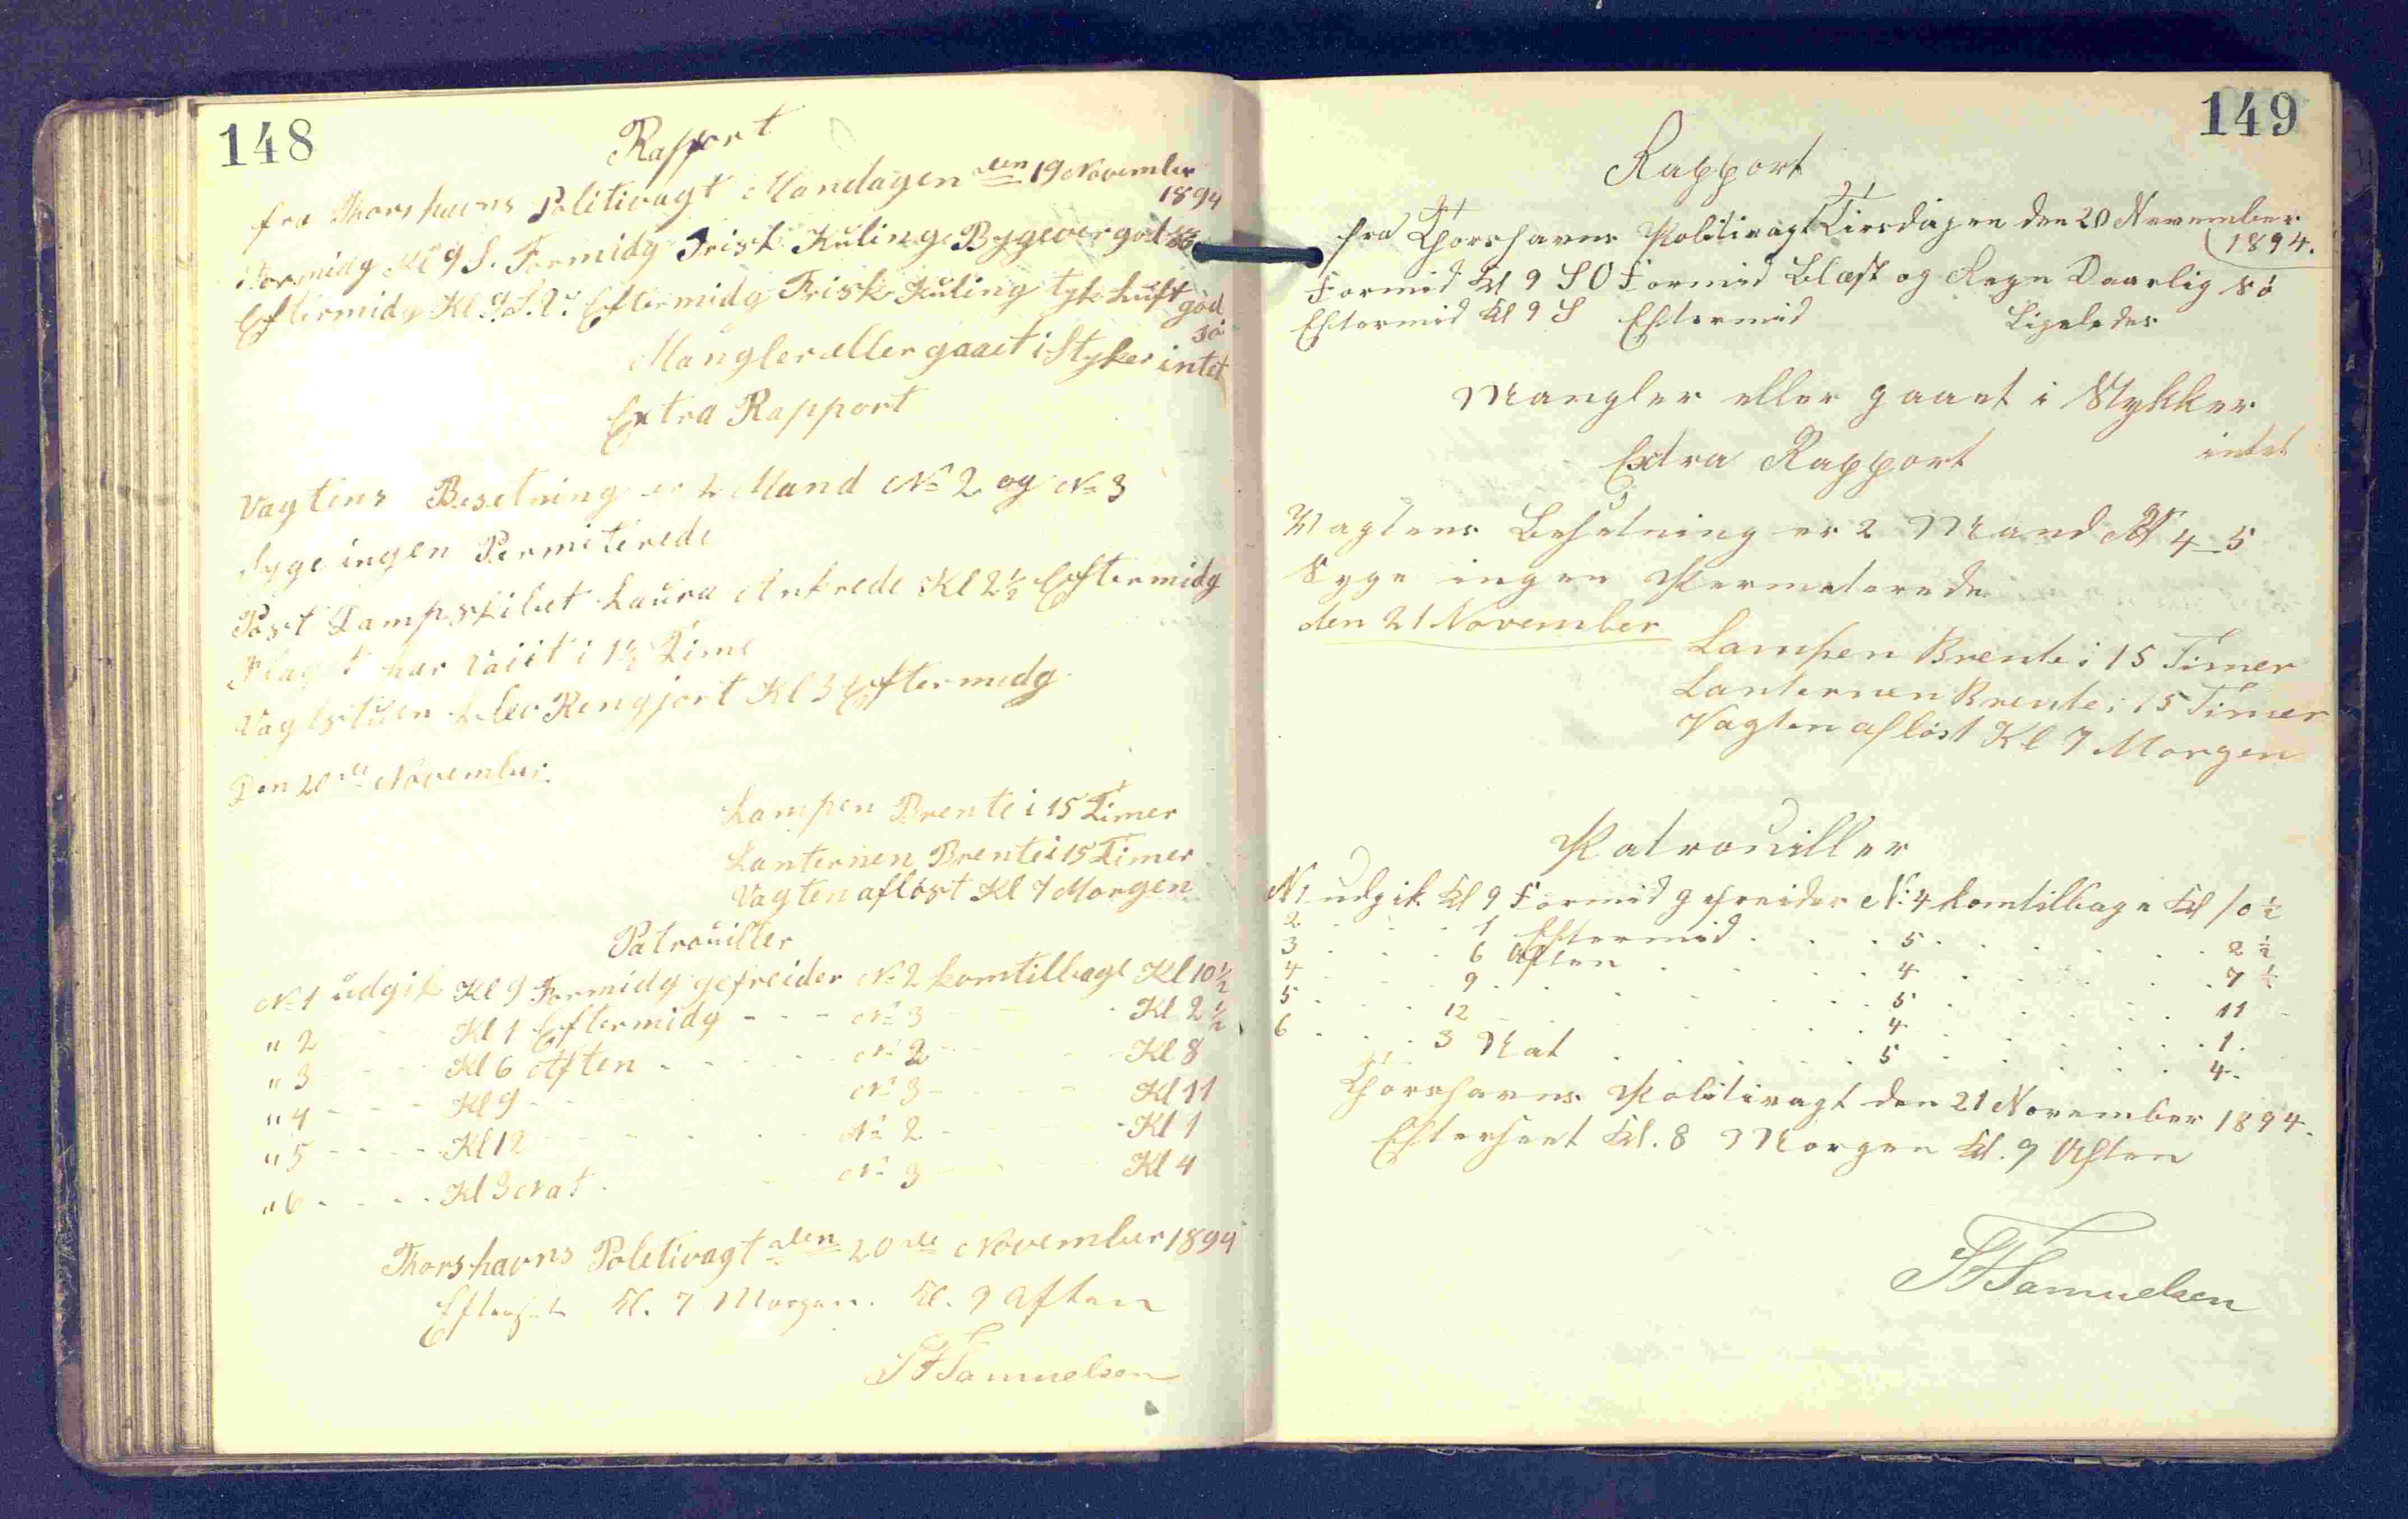 148
Rapport
fra Thorshavns Politivagt Mandagen den 19 November
1894
Formidg Kl 9 S. Formidg Frisk Kuling Bygevor god sö
Eftermidg Kl 9 S.V. Eftermidg Frisk Kuling tyk Luft god
sö
Mangler eller gaaet i Styker intet
Extra Rapport
Vagtens Besetning er 2 Mand No 2 og No 3
Syge ingen Permiterede
Post Dampskibet Laura Ankrede Kl 2½ Eftermidg
Flagt har vaiit i 1½ Time
Vagtstuen blev Rengjort Kl 3 Eftermidg
Den 20de November.
Lampen Brente i 15 Timer
Lanternen Brente i 15 Timer
Vagten aflöst Kl 7 Morgen
Patrouiller
No 1 udgik Kl 9 Formidg gefreider No 2 kom tilbage Kl 10½
" 2 - - Kl 1 Eftermidg - - - No 3 - - - Kl 2½
" 3 - - - Kl 6 Aften - - - - No 2 - - - Kl 8
" 4 - - - Kl 9 - - - No 3 - - - - Kl 11
" 5 - - - - Kl 12 - - - - No 2 - - - - Kl 1
" 6 - - - Kl 3 Nat - - - No 3 - - - Kl 4
Thorshavns Poletivagt den 20de November 1894
Efterseet Kl. 7 Morgen. Kl. 9 Aften
Samuelsen
149
Rapport
fra Thorshavns Politivagt Tirsdagen den 20 November
1894.
Formid Kl 9 SO Formid Blæst og Regn Daarlig sö
Eftermid Kl 9 S Eftermid Ligeledes
Mangler eller gaaet i Stykker
intet
Extra Rapport
Vagtens Besetning er 2 Mand No 4_5
Syge ingen Permeterede
den 21 November
Lampen Brente i 15 Timer
Lanternen Brente i 15 Timer
Vagten aflöst Kl 7 Morgen
Patrouiller
N1 udgik Kl 9 Formid gefreider No 4 kom tilbage Kl 10½
2 . . . 1 Eftermid . . . 5 . . . . 2½
3 . . . 6 Aften . . . . 4 . . . . 7½
4 . . . 9 . . . . . 5 . . . . 11
5 . . . 12 . . . . . 4 . . . . 1.
6 . . . 3 Nat . . . . 5 . . . . 4.
Thorshavns Politivagt den 21 November 1894.
Efterseet Kl. 8 Morgen Kl. 9 Aften
Samuelsen